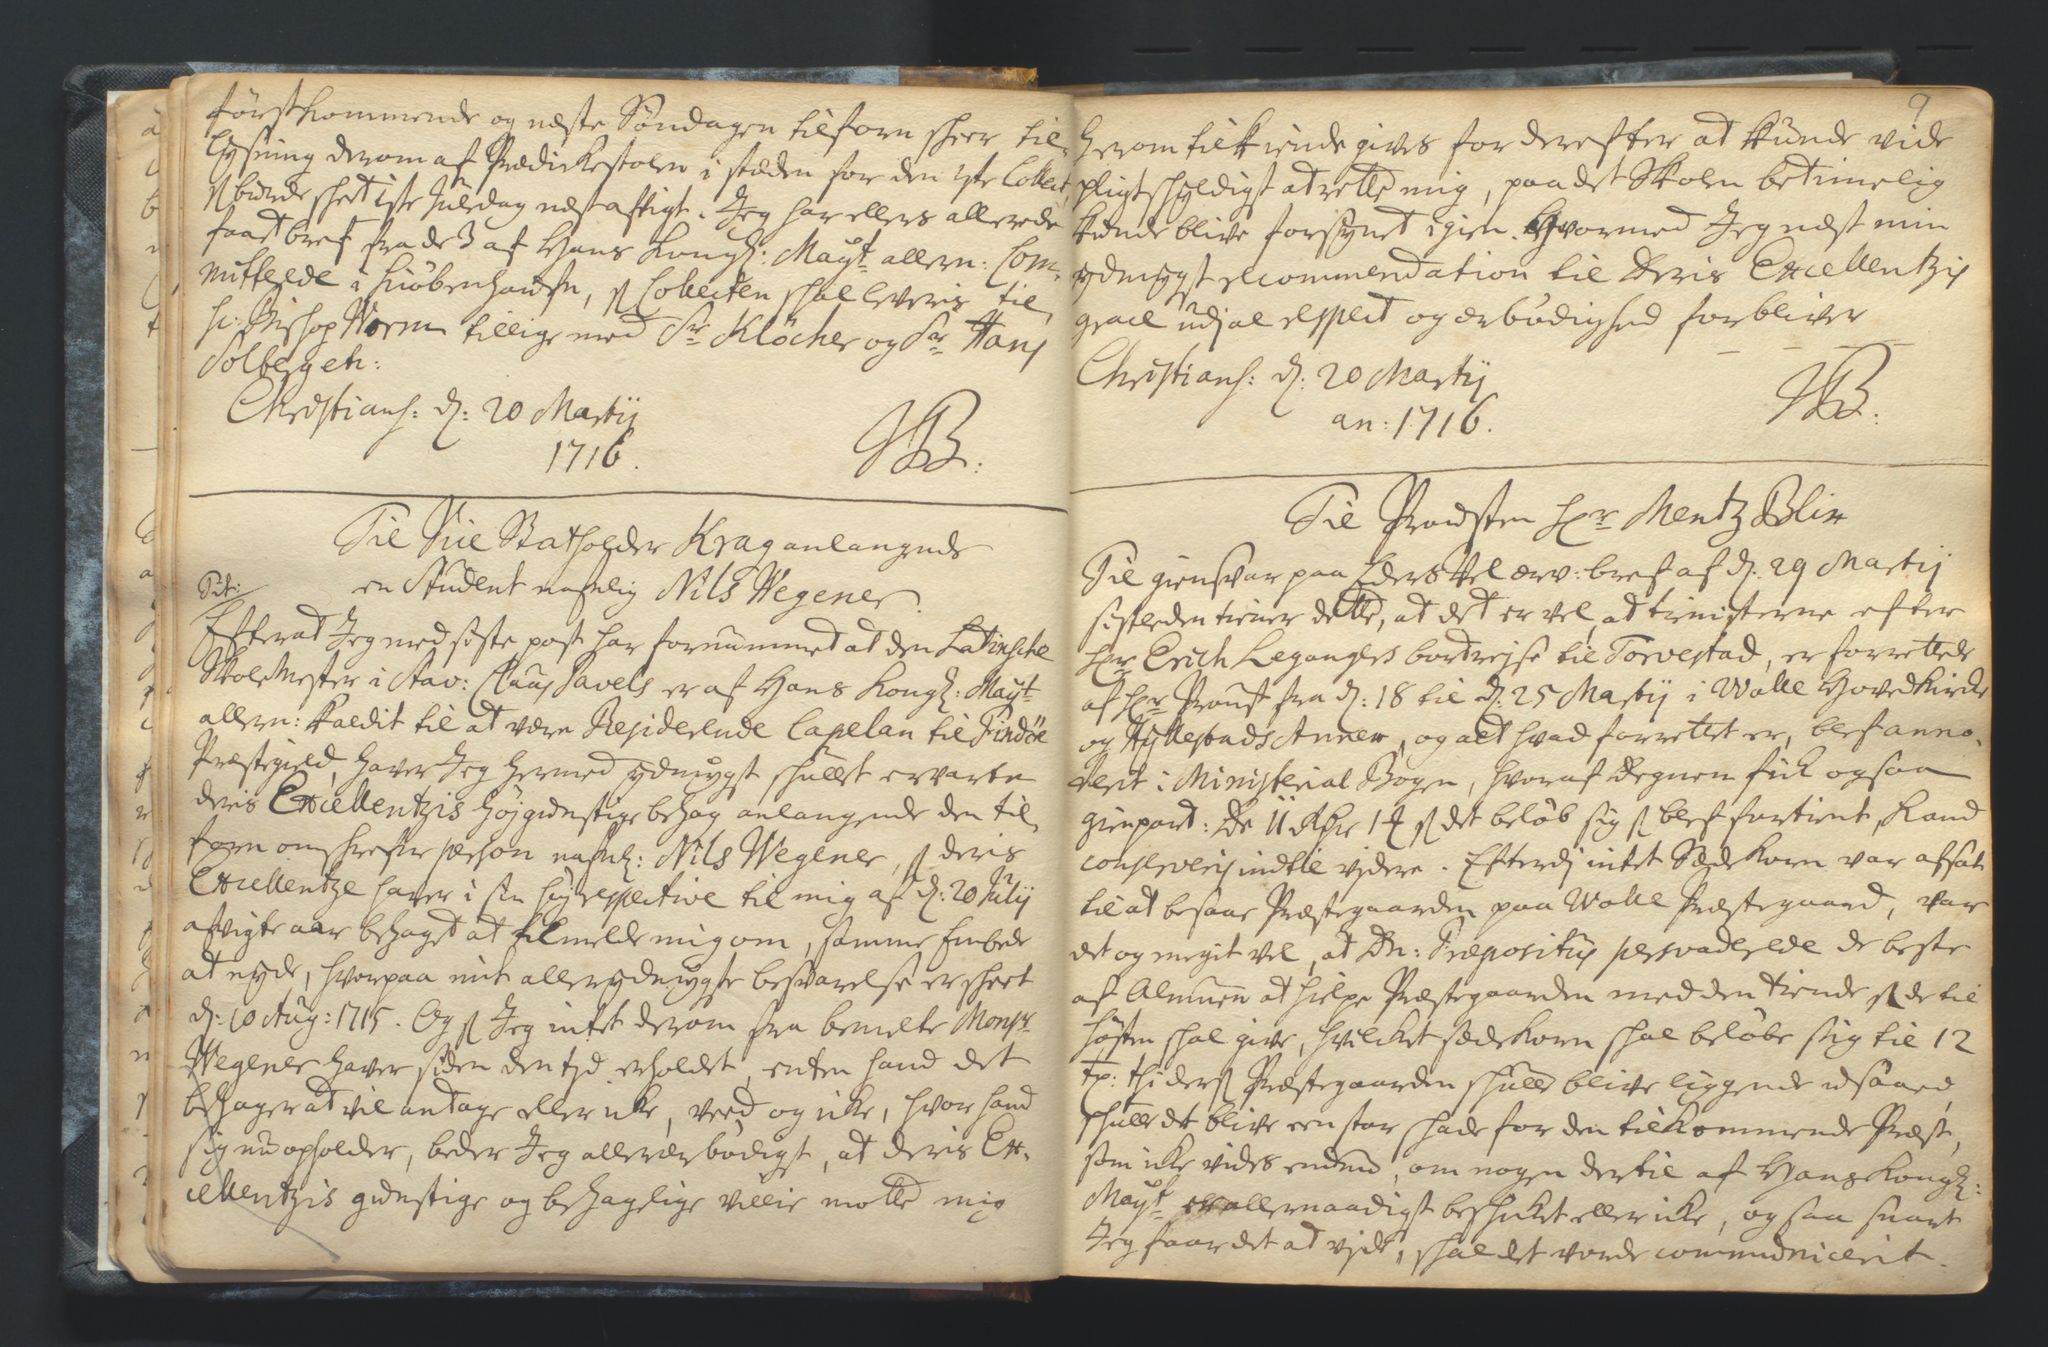 førstkommende og neste Søndagen tilforn skeer til,
lysning derom af Prædickestolen i stæden for den 4te Collect,
som burde skeet 1ste Juledag nest afvigt. Jeg har ellers allerede
faaet bref fra de 3 af Hans Kongl: Mayt allern: Com-
mitterede i Kiøbenhaufn, som Collecten skal leveris til,
hr: Bishop Worm tillige med Sr Klöcher og Sr Hans
Solberg etc:
Christians: d: 20 Martij
1716.
JB:
Til Vice Statholder Krag anlangende
en Student nafnlig Nils Wegener.
Tit:
Efterat Jeg med siste post har fornummet at den Latinske
Skole Mester i Stav: Claus Pavels er af Hans Kongl: Mayt
allern: kaldet til at være Residerende Capelan til Findöe
Præstegield, haver Jeg hermed ydmygst skullet ervarte
deris Excellentzis højgunstige behag anlangende den til,
forn omskrefne person nafnl: Nils Wegener, som deris
Excellentze haver i sin høyrespective til mig af d: 20 Julij
afvigte aar behaget at tilmelde mig om, samme Embede
at nyde, hvorpaa mit allerydmygste besvarelse er skeet
d: 10 Aug: 1715. Og som Jeg intet derom fra bemelte Monsr
Wegener haver siden den tjd erholdet, enten hand det
behager at vil antage eller icke, veed og icke, hvor hand
sig nu opholder, beder Jeg allerærbødigst, at deris Ex-
cellentzis gunstige og behagelige villie motte mig
9
herom tilkiende gives for derefter at kunde vide
pligtskyldigst at rette mig, paa det Skolen betimelig
kunde blive forsynet igien. Hvormed Jeg nest min
ydmygst recommendation til deris Excellentzis
grace udj al respect og ærbødighed forbliver
Christians: d: 20 Martij
an: 1716.
JB:
Til Provsten hr Mentz Blix
Til giensvar paa Eders Vel ærv: bref af d. 29 Martij
sistleden tiener dette, at det er vel, at tienisterne efter
hr Erich Leganger bortrejse til Torvestad, er forrettede
af hr Provst fra d: 18 til d: 25 Martij i Walle Hovedkirke
og Hyllestads Annex, og alt hvad forrettet er, blef anno,
terit i Ministerial Bogen, hvoraf Degnen fick ogsaa
gienpart: De 11 rdr 1 ort som det beløb sig som blef fortient, kand
conserveris indtil videre. Efterdj intet Sædekorn var afsat
til at besaae Præstegaarden paa Walle Præstegaard, var
det og meget vel, at Dn: Præpositus persvaderede de beste
af Almuen at hielpe Præstegaarden med den tiende som de til
høsten skal give, hvilcket sædekorn skal beløbe sig til 12
tr: thi dersom Præstegaarden skulle blive liggende usaaed,
skulle det blive een stor skade for den tilkommende Præst,
som icke vides endnu, om nogen dertil af Hans Kongl:
Mayt er allernaadigst beskicket eller icke, og saa snart
Jeg faar det at vide, skal det vorde communicerit.